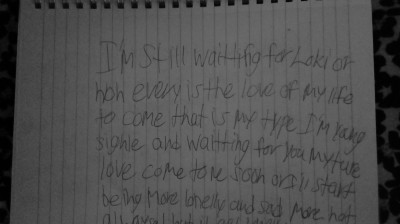 I'm Still waitting for Loki or
hoh every is the love of my life
to come that is my type I'm young
sighle and waitting for you my ture
love come to me soon or I'll start
being more lonelly and sad more hat